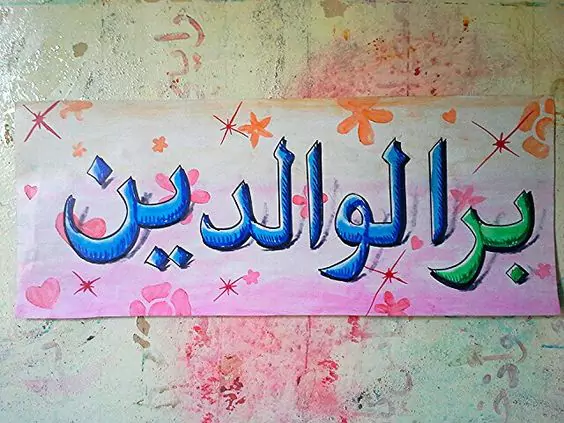 بر الوالدين